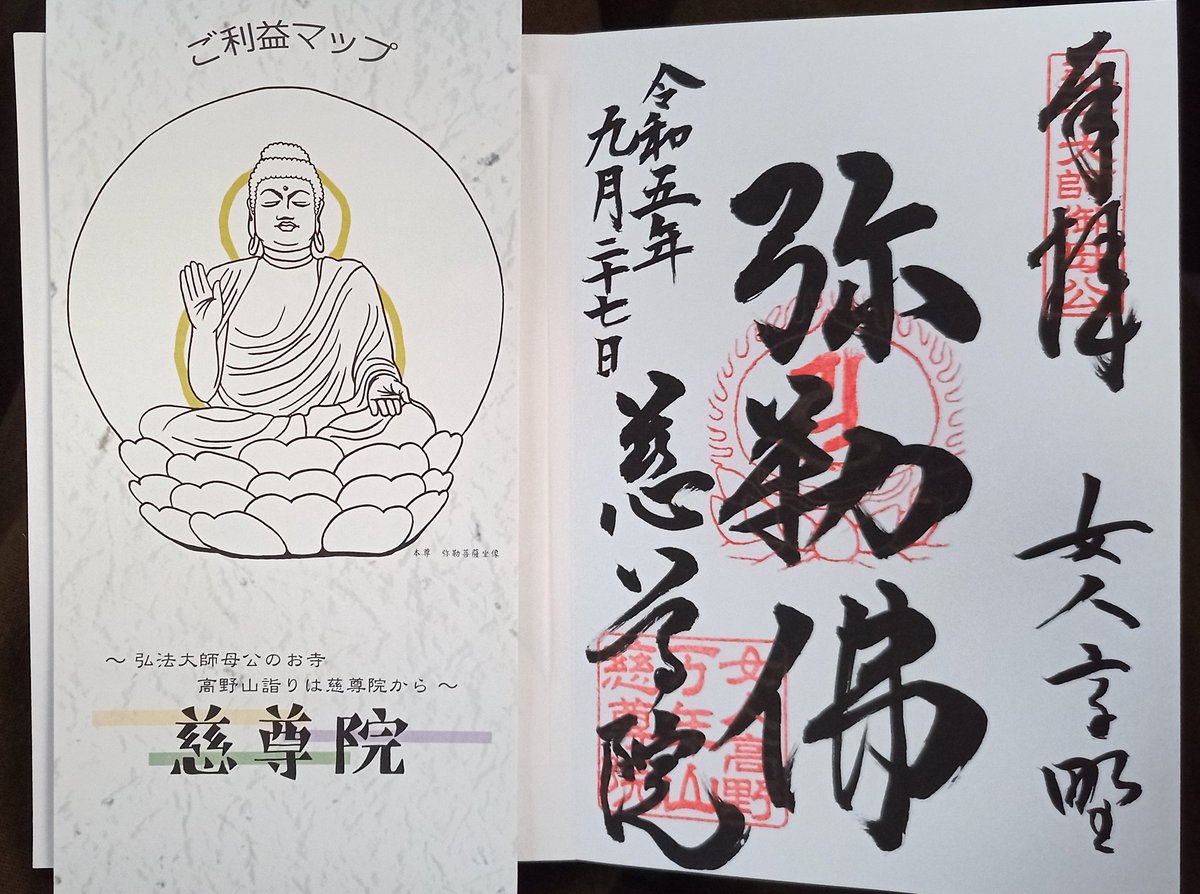 ご利益マップ
本尊 弥勒菩薩坐像
～ 弘法大師母公のお寺
高野山詣りは慈尊院から ～
慈尊院
奉拝
弘法大師御母公
女人高野
弥勒佛
令和五年
九月二十七日
慈尊院
女人高野
万年山
慈尊院